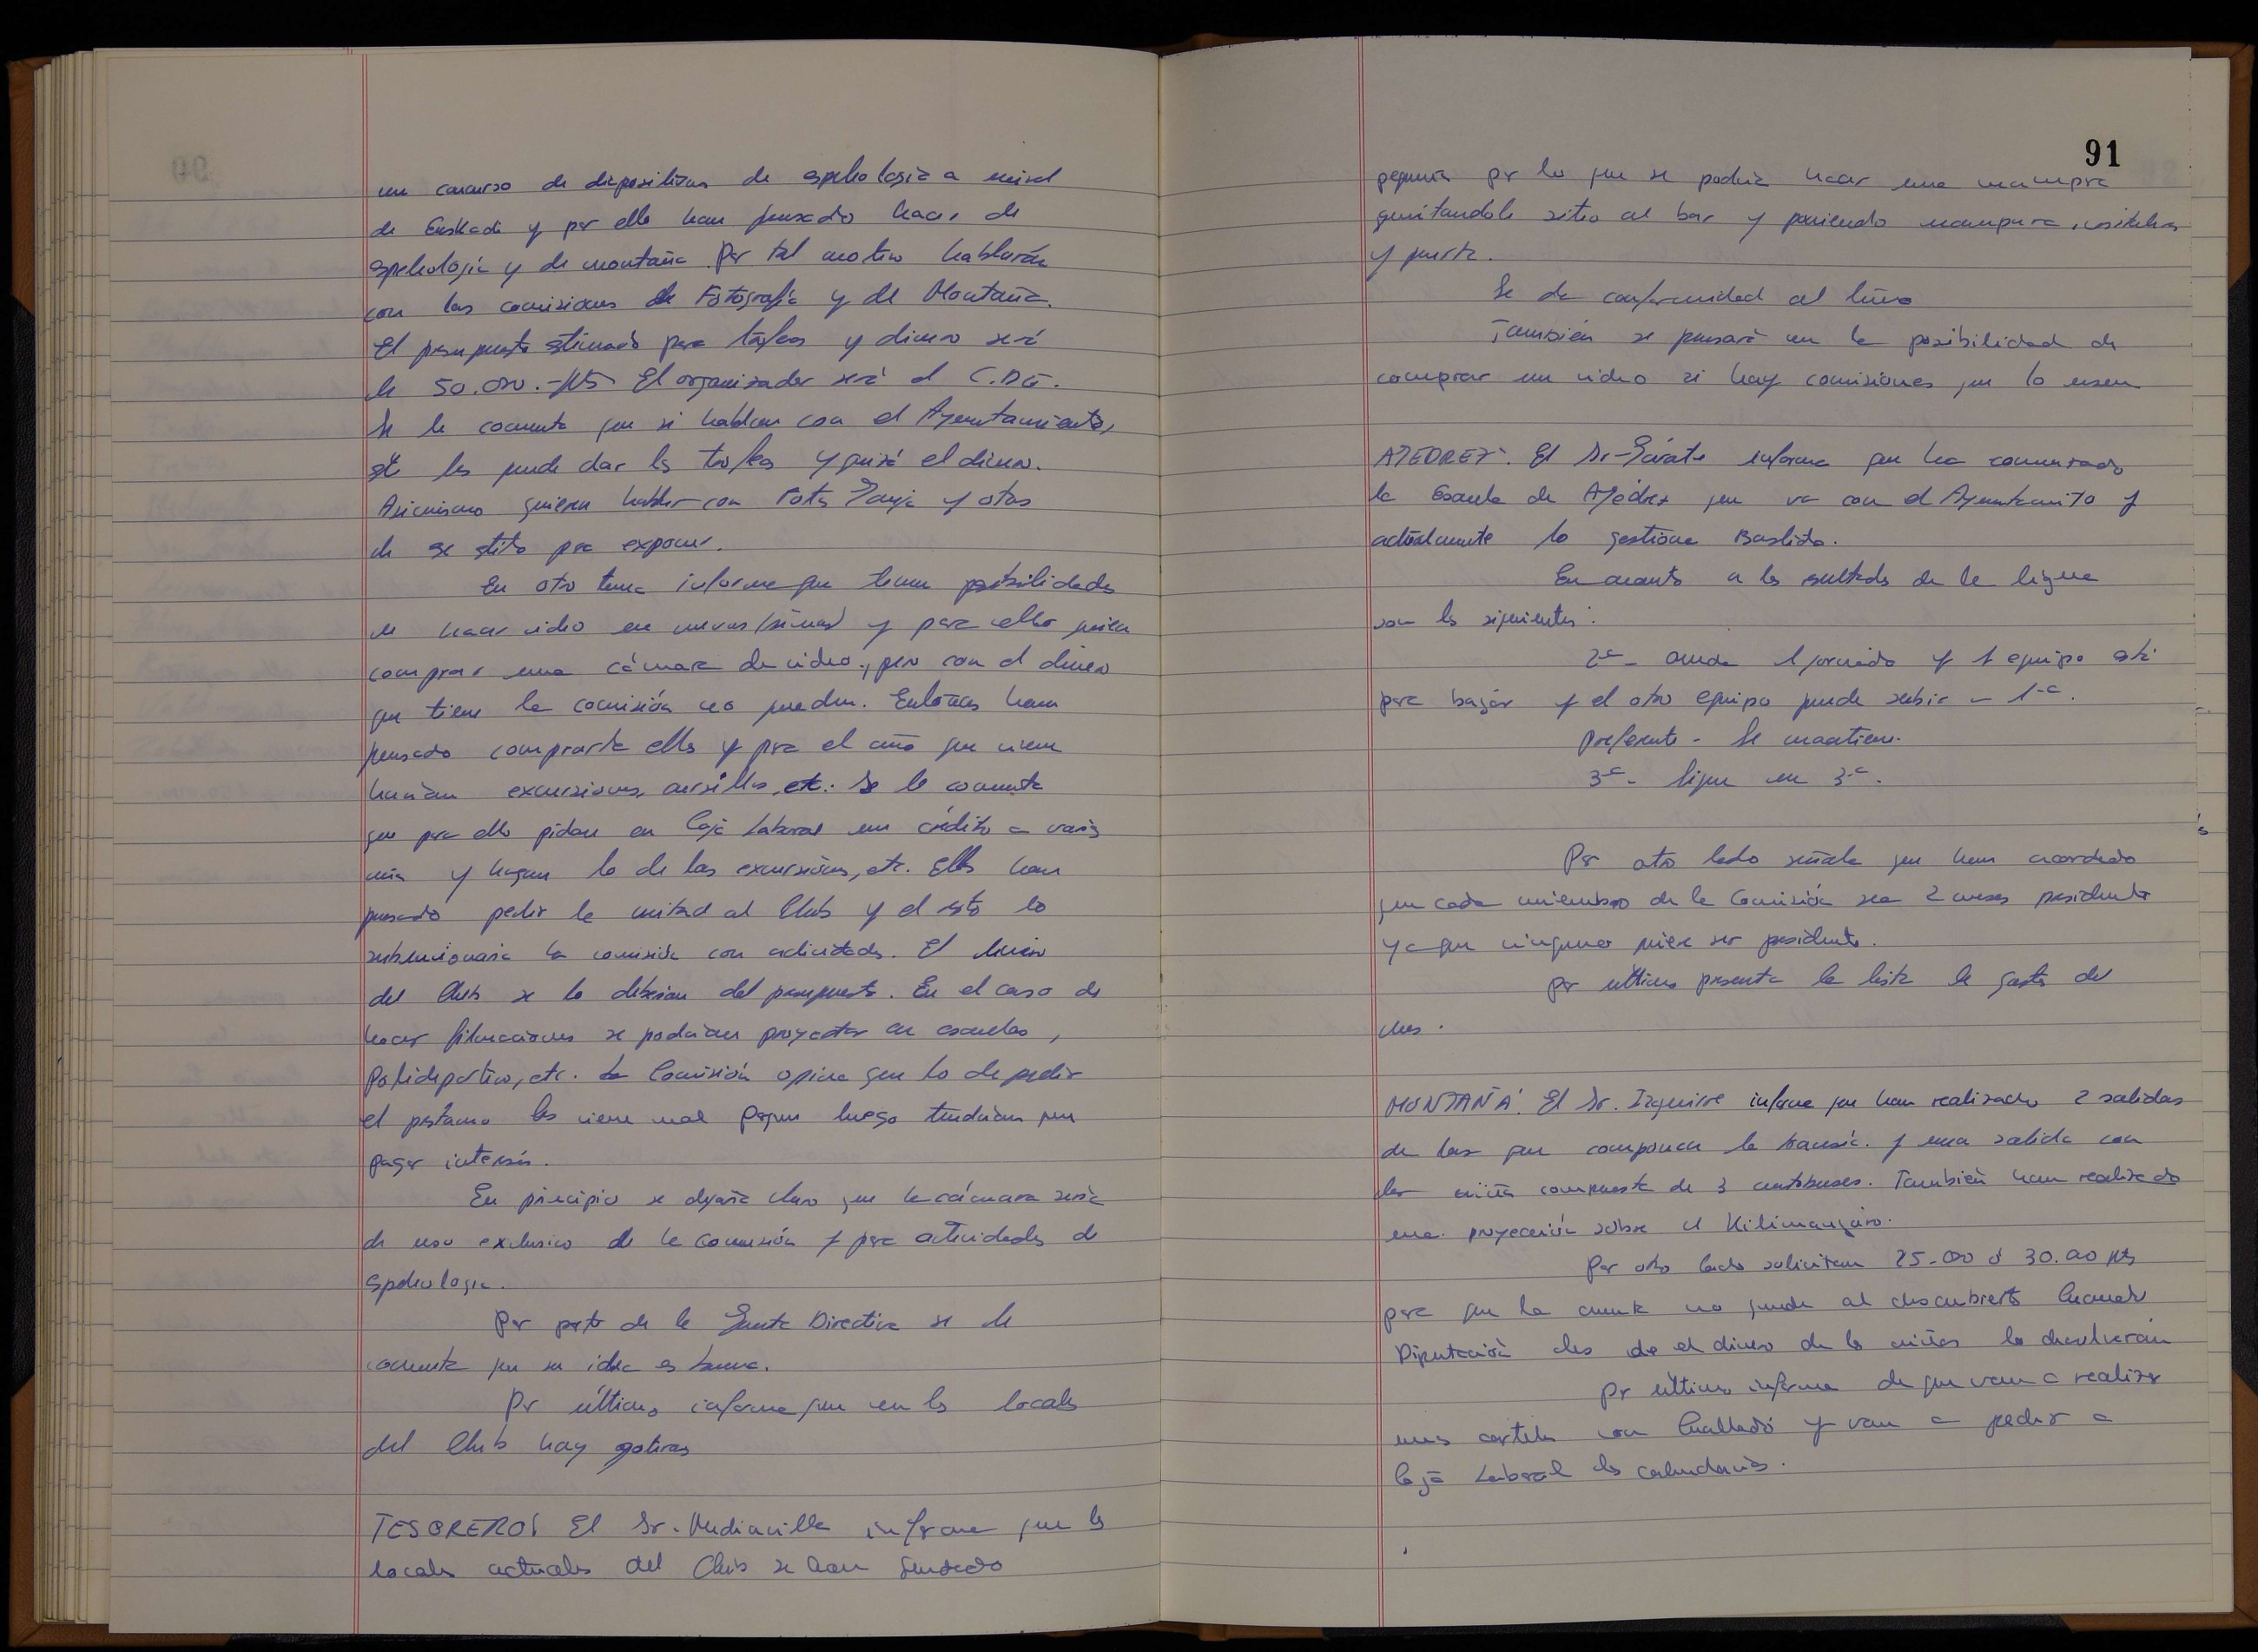 un concurso de diapositivas de espeleologia a nivel
de Euskadi y por ello han pensado hacer de
espeleologia y de montaña. Por tal motivo hablarán
con las comisiones de Fotografia y de Montaña.
El presupuesto estimado para trofeos y dinero será
de 50.000.- pts El organizador será el C.D.G.
Se le comenta que si hablan con el Ayuntamiento,
este les puede dar los trofeos y quizá el dinero.
Asimismo quieren hablar con Foto y otros
de ese estilo para exponer.
En otro tema informa que tienen posibilidades
de hacer video en cuevas (simas) y para ello quieren
comprar una cámara de video, pero con el dinero
que tiene la comisión no pueden. Entonces han
pensado comprarla ellos y para el año que viene
harian excursiones, cursillos, etc. Se le comenta
que para ello pidan en Caja Laboral un crédito a varios
y hagan lo de las excursiones, etc. Ellos han
pensado pedir la mitad al Club y el resto lo
subvencionaria la comisión con actividades. El dinero
del Club se lo del presupuesto. En el caso de
hacer filmaciones se podrian proyectar en escuelas,
Polideportivo, etc. La Comisión opina que lo de pedir
el prestamo les viene mal porque luego tendrian que
pagar interés.
En principio se dejaria claro que la cámara seria
de uso exclusivo de la comisión y para actividades de
espeleologia.
Por parte de la Junta Directiva se le
comenta que su idea es buena.
Por último informa que en los locales
del Club hay goteras
TESORERO: El Sr. Mediavilla informa que los
locales actuales del Club se han quedado
91
pequeños por lo que se podria hacer una mampara
quitandole sitio al bar y poniendo mampara,
y puerta.
Se da conformidad al
También se pensará en la posibilidad de
comprar un video si hay comisiones que lo usen
AJEDREZ: El Sr. Gárate informa que ha comenzado
la Escuela de Ajedrez que va con el Ayuntamito y
actualmente lo gestiona Bastida.
En cuanto a los resultados de la ligua
son los siguientes:
2ª- queda 1 jornada y 1 equipo está
para bajar y el otro equipo puede subir a 1ª.
Preferente - Se mantiene.
3ª- sigue en 3ª.
Por otro lado señala que han acordado
que cada miembro de la Comisión sea 2 meses presidente
ya que ninguno quiere ser presidente.
Por último presenta la lista de gastos del
mes.
MONTAÑA: El Sr. Izaguirre informa que han realizado 2 salidas
de las que componen la travesia. y una salida con
los niños compuesta de 3 autobuses. También han realizado
una proyección sobre el Kilimanjaro.
Por otro lado solicitan 25.000 ó 30.000 pts
para que la cuenta no quede al descubierto Cuando
Diputación les de el dinero de los niños lo devolverán
Por último informa de que van a realizar
unos carteles con y van a pedir a
Caja Laboral los calendarios.